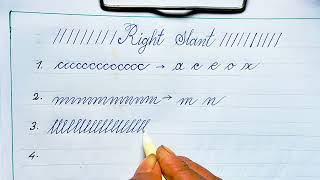 ////////// Right Slant //////////
1. ccccccccccc → a c e o x
2. mmmmmmm → m n
3. llllllllllllllll
4.